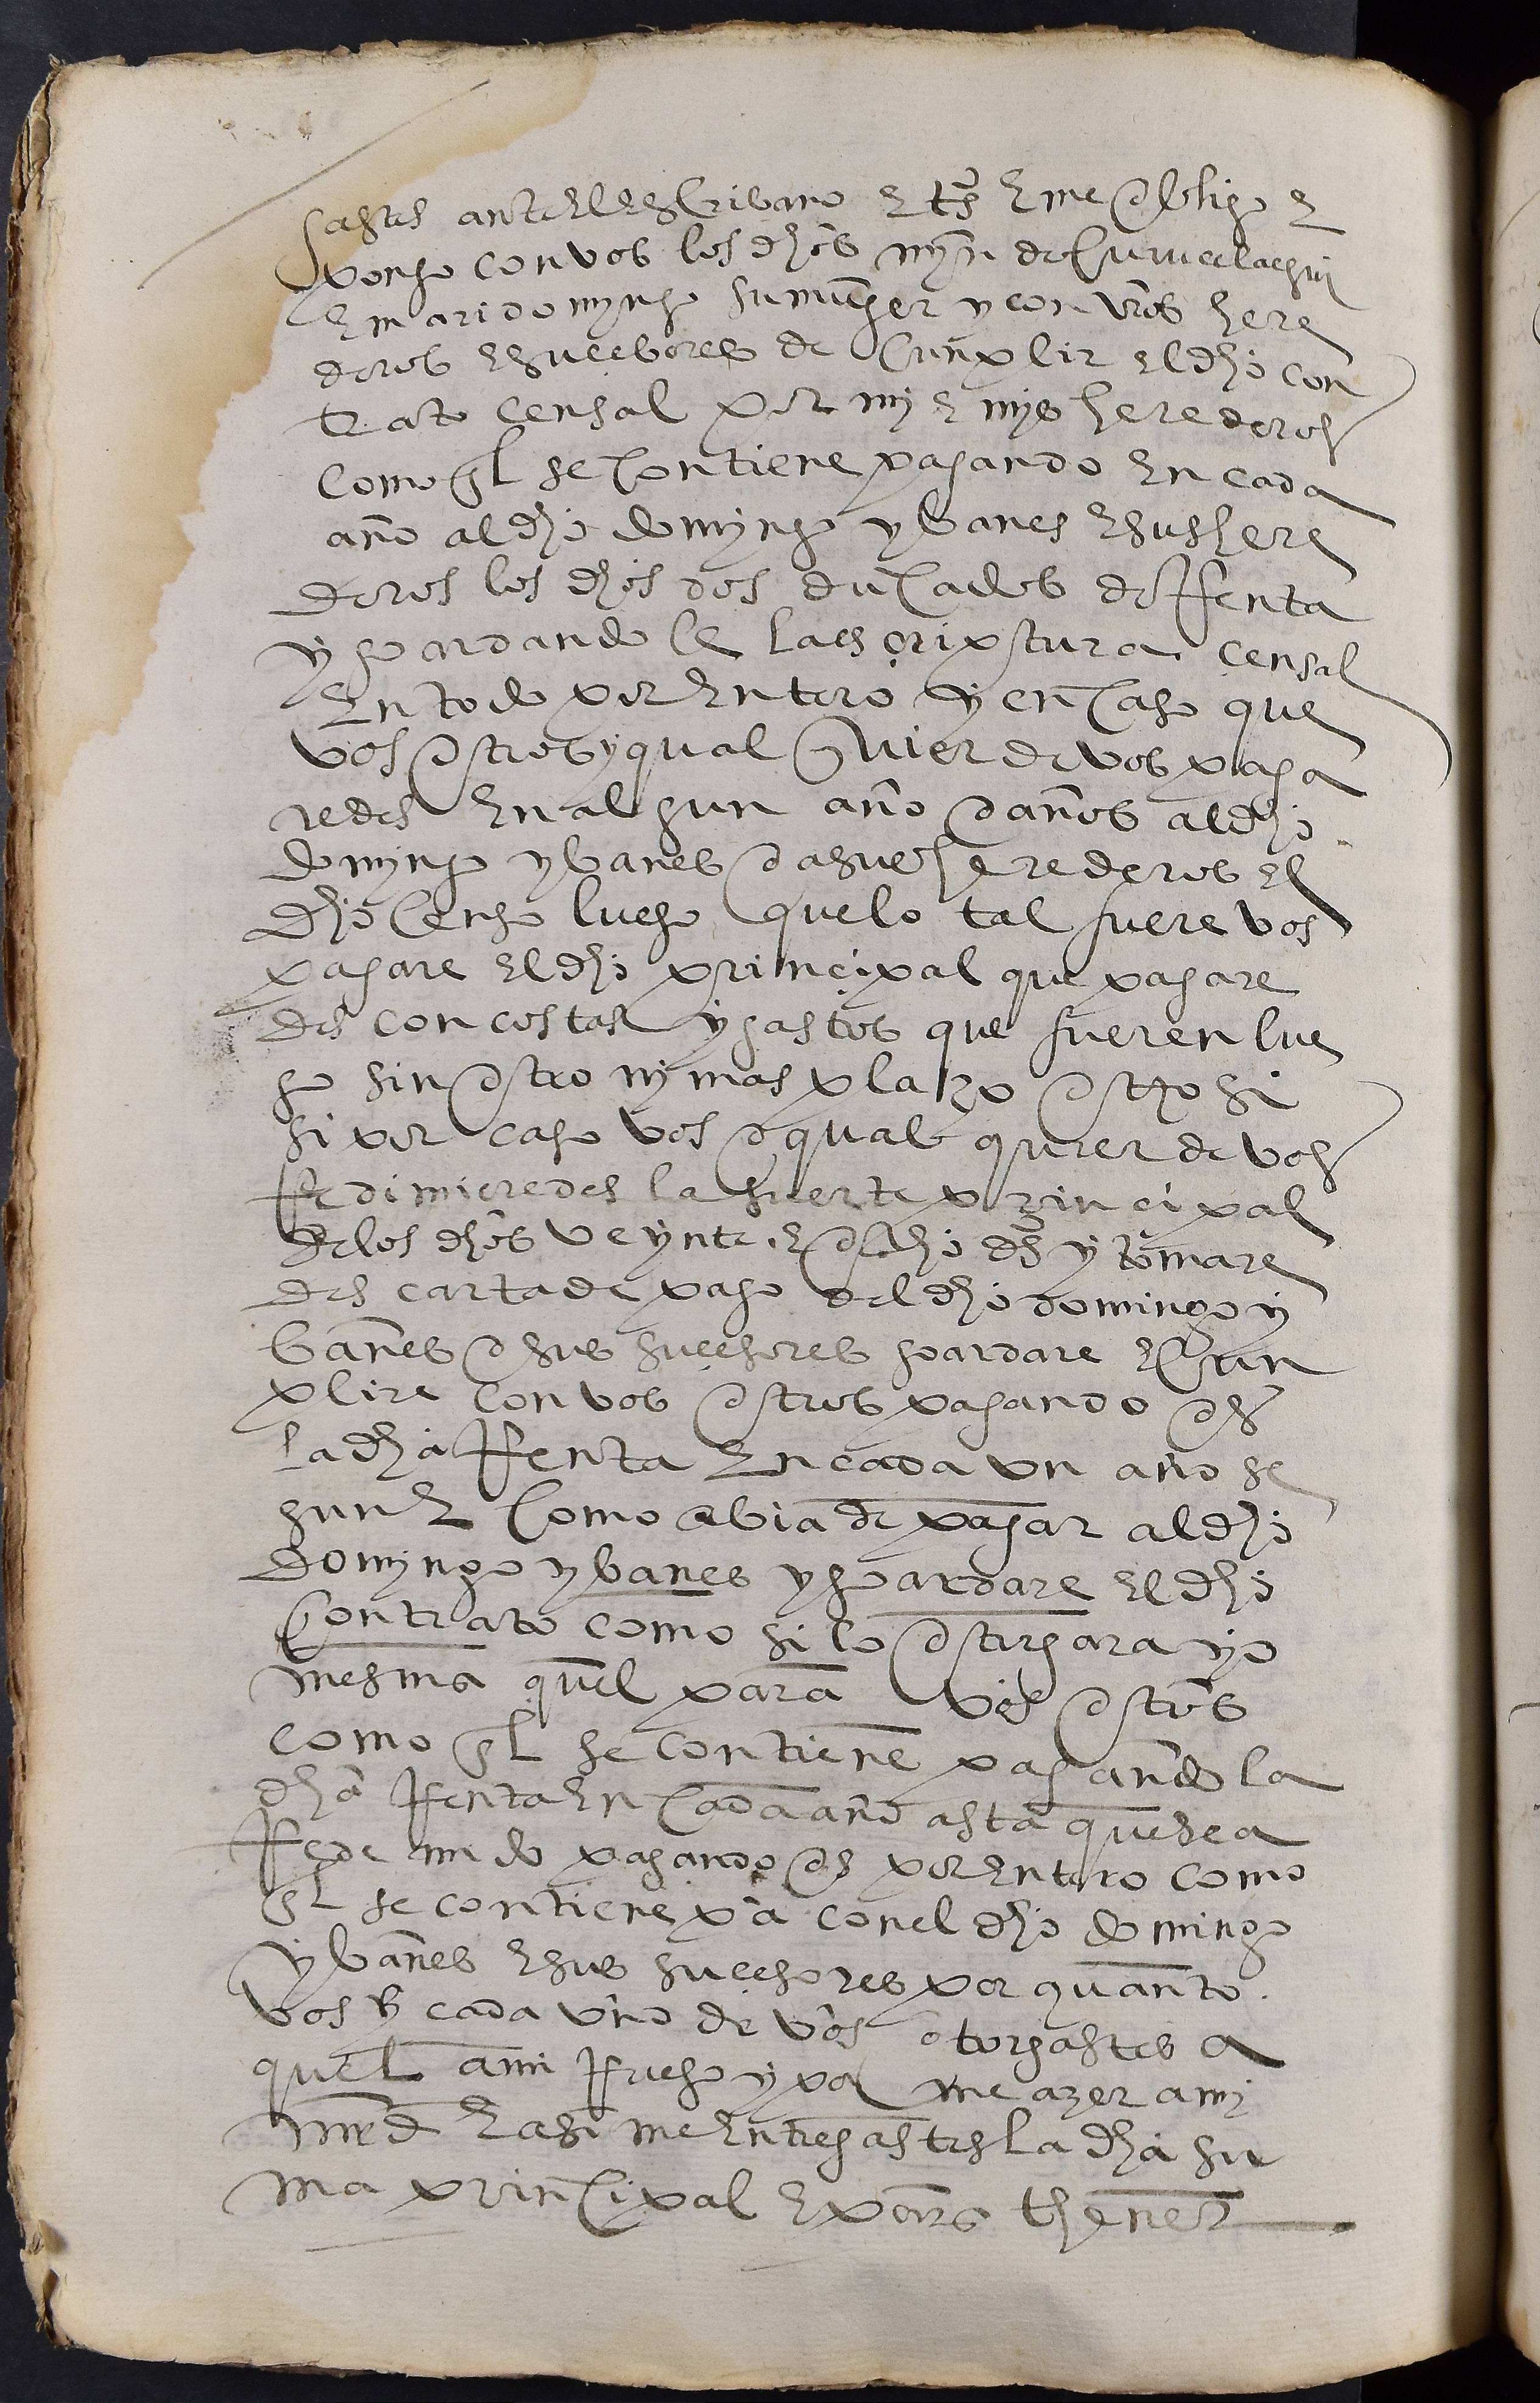 gastes ante el escribano e tsº e me obligo e
pongo con vos los dhōs myn de Çumelaegui
e mari domyngo su muger y con vrōs here
deros e suçesores de cunplir el dhō con
trato censal por my e mys herederos
como ql se contiene pagando en cada
año al dhō domyngo ybanes e sus here
deros los dhōs dos ducados de rrenta
y goardando le la escriptura censal
en todo por entero y en caso que
vos otros y qual quier de vos paga
redes en algun año o años al dhō
domyngo ybanes o a sus herederos el
dhō censo luego que lo tal fuere vos
pagare el dhō prinçipal que pagare
des con costas y gastos que fueren lue
go sin otro ny mas plazo otro si
si por caso vos o qual quier de vos
rredimieredes la suerte prinçipal
de los dhōs veynte e ocho ds y tomare
des carta de pago del dhō domingo y
banes o sus suçesores goardare e cun
plire con vos otros pagando os
la dhā rrenta en cada un año se
gund como abia de pagar al dhō
domyngo ybanes y goardare el dhō
contrato como si lo otorgara yo
mesma quel para vos otros
como ql se contiene pagando la
dhā rrenta en cada año asta que sea
rredemido pagando os por entero como
ql se contiene pa con el dhō domingo
ybanes e sus suçesores por quanto
vos y cada uno de vos otorgastes a
quel a mi rruego y por me azer a my
mrd e asi me entregastes la dhā su
ma prinçipal e por thener